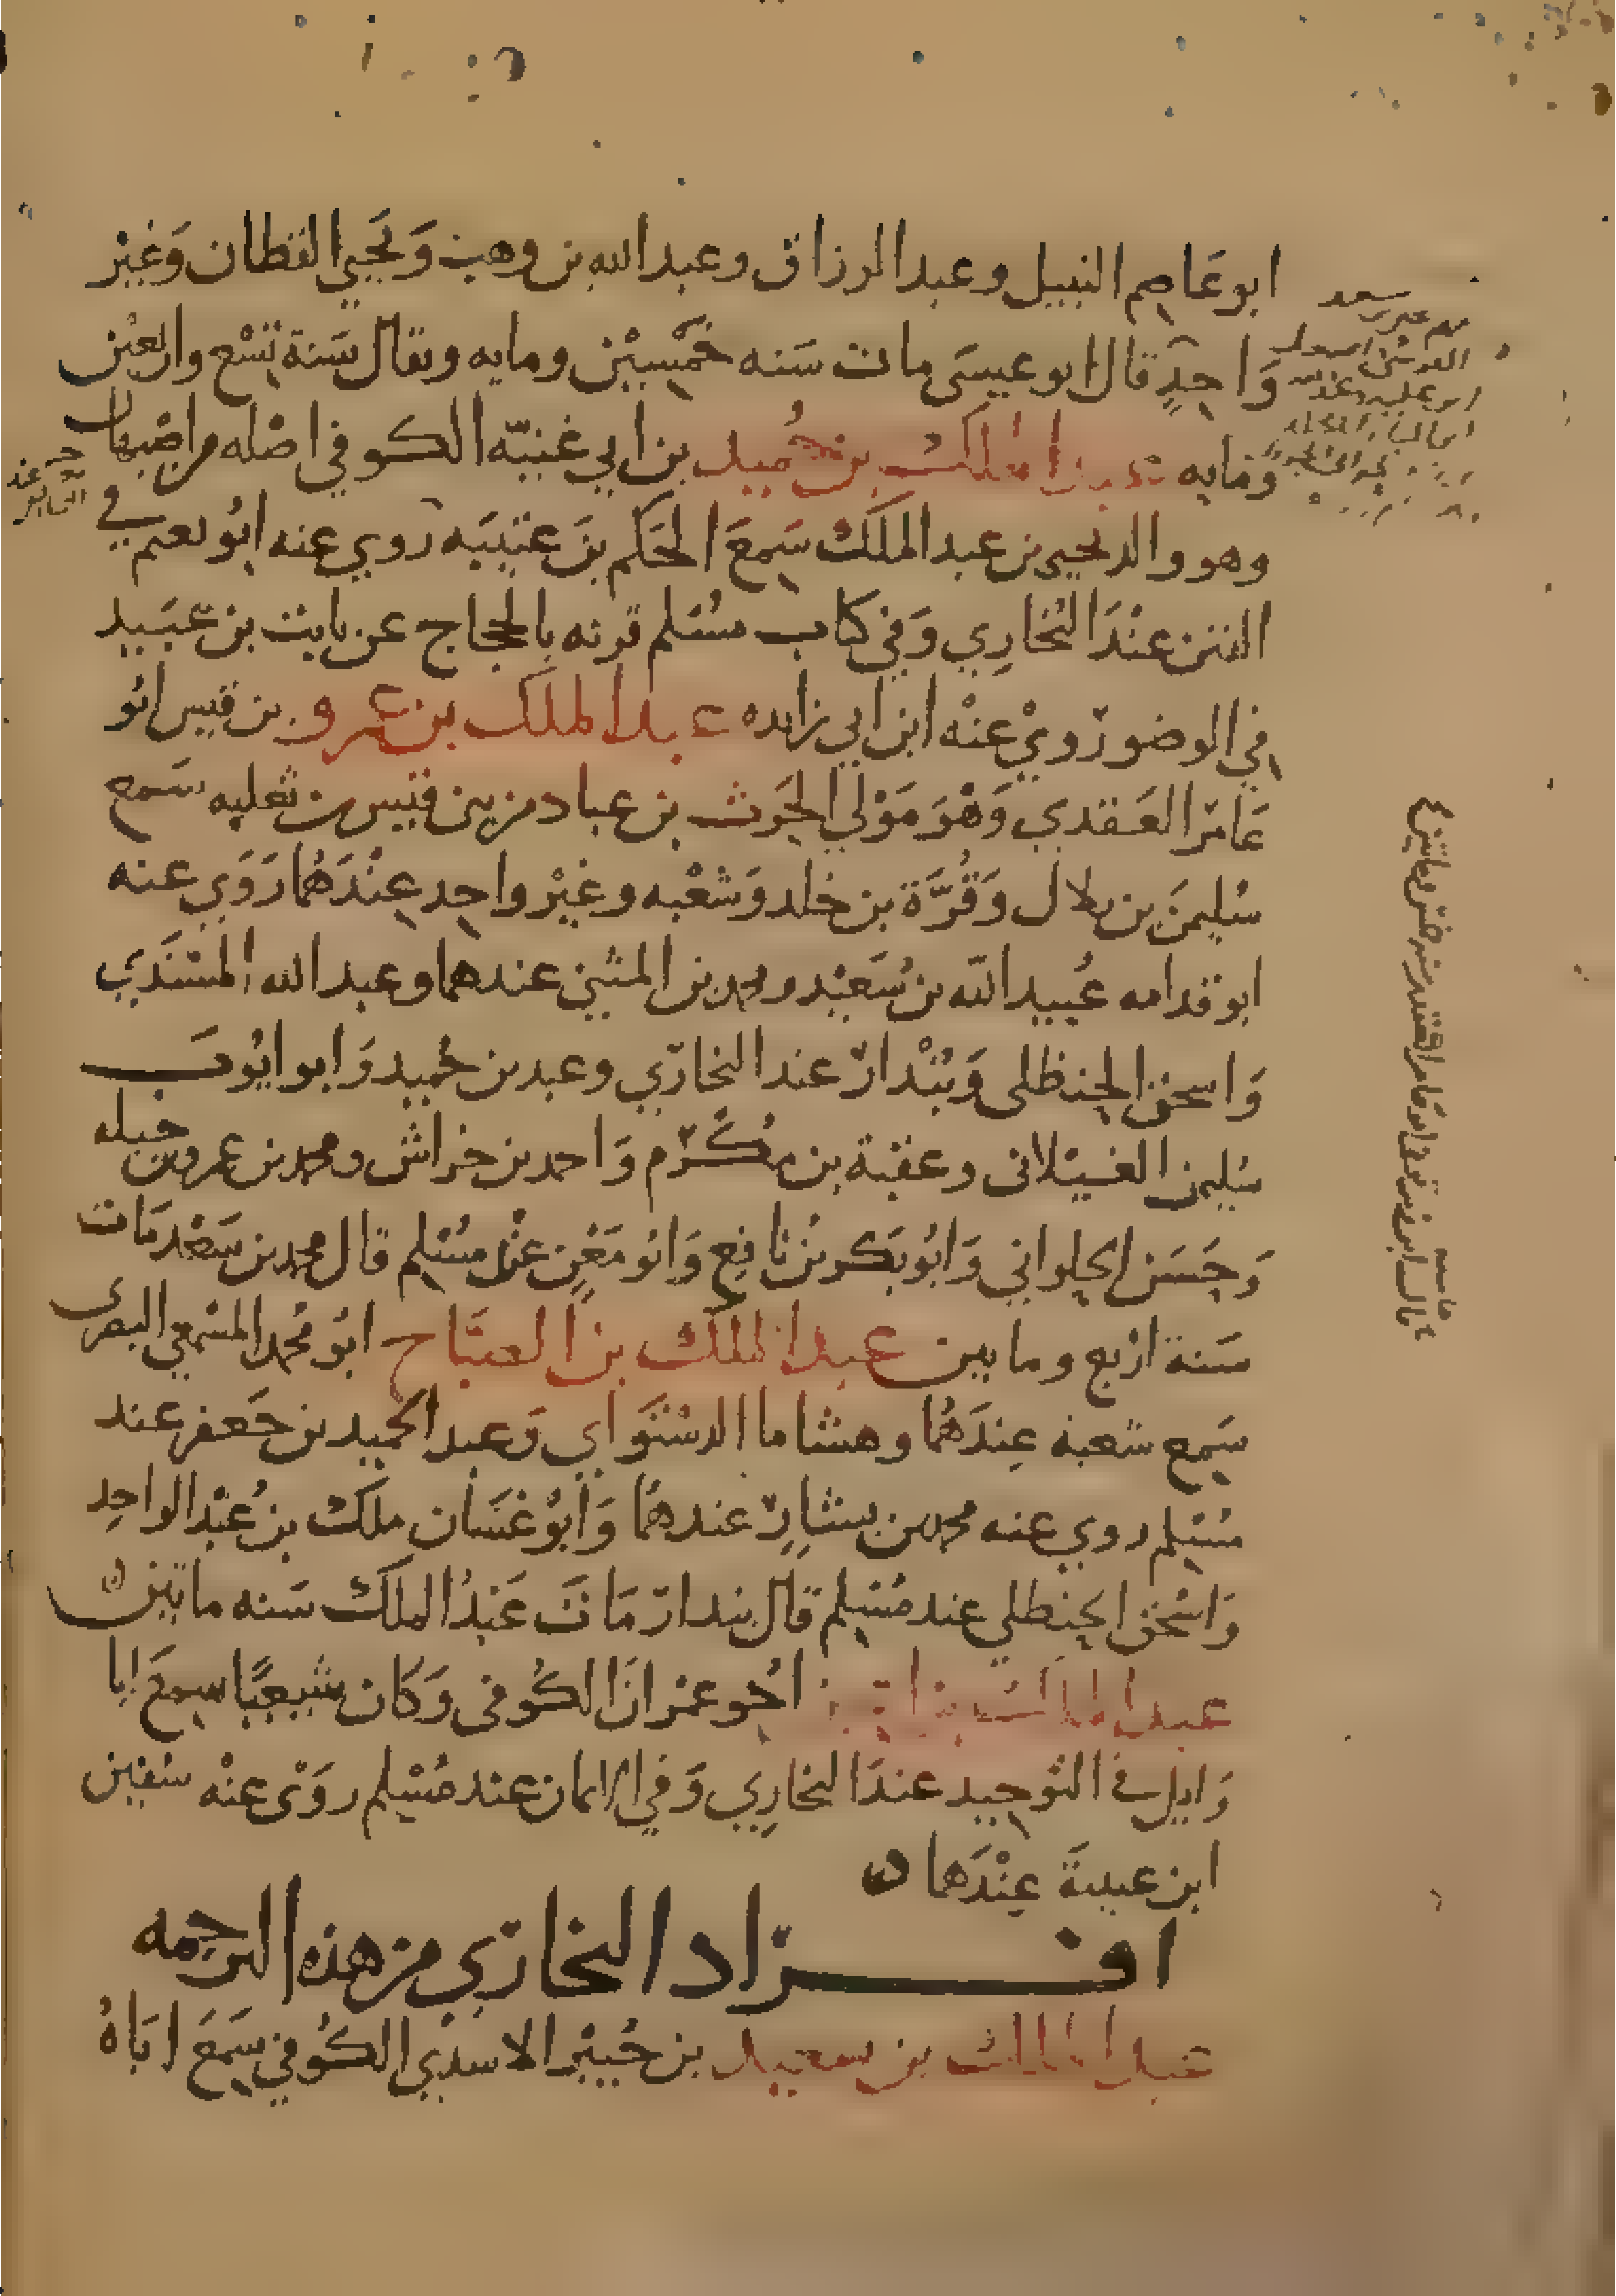 ابو عَاصم النبيل وعبد الرزاق وعبد الله بن وهب وَيَحيي القطان وَغَيْر
وَاحِدٍ قال ابو عيسَى مات سَنه خمْسِيْن ومايه ويقال سَنة تسْع واربعين
وَمايه عبد الملك بن حُميد بن ابي غنيّه الكوفي اصْله من اصْبهان
وهو والد يحيى بن عبد الملك سَمعَ الحَكم بنَ عتيبَه روي عنه ابُو نعيم في
الفتن عنْدَ البُخارِي وَفي كتاب مسُلم قرنه بالحجاج عن ثابت بن عبَيد
في الوضو رَويْ عنْه ابن ابي زايده عبد الملك بن عمرو بن قيس ابُو
عَامرْ العَقدي وَهْوَ مَوْلي الحَرث بن عباد من بني قيس بن ثعلبه سَمع
سُليمنَ بن بلال وَقُرَّة بن خلد وَشعْبه وغيْر واحِد عِنْدَهُمَا رَوَي عنه
ابو قدامه عُبيد الله بن سَعيْد ومحمد بن المثني عندهما وعبد الله المسْنَدي
وَاسحق الحنظلى وَبُنْدارٌ عند البخارّي وعبد بن حُميد وَابو ايُوبَ
سُليمن الغيْلانى وعقبة بن مُكْرَم وَاحمد بن خراش ومحمد بن عمرو بن جبله
وَحَسَن الحلواني وَابُو بَكر بنُ نافِع وَابُو مَعْنٍ عنْد مسُلم قال محمد بن سَعْد مَات
سَنة ارْبع ومايتين عبد الملك بن الصَبَّاح ابُو محُمد المسْمَعي البصرى
سَمع شعبه عِندَهُمَا وهشاما الدسْتَوَاي وَعبد الحميد بن جَعفر عند
مسُلم روي عنه محمد بن بشارِ عندهمُا وَابُوْ غَسَان ملك بنُ عَبْد الواحِد
وَاسْحق الحنظلي عند مسُلم قال بندارٌ مَاتَ عَبْدُ الملك سَنه مايتين
عبد الملك بن اعين اخُو حمرانَ الكُوفى وَكان شيعيًا سمعَ ابا
وَايل في التوحيد عندَ البخارِي وَفي الايمان عند مسُلم روَىْ عنْه سُفين
ابن عيينةَ عِنْدَهُما
افراد البخارّي من هذه الترجمه
عبد الملك بن سعيد بن جُبيْر الاسدي الكُوفي سَمعَ ابَاهُ